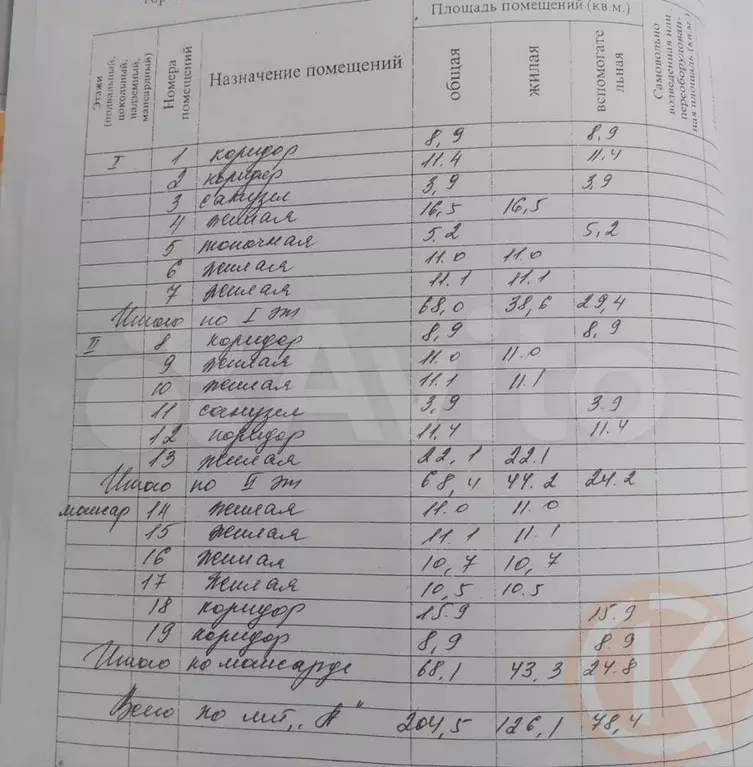 Площадь помещений (кв.м.)
Этажи (подвальный, цокольный, надземный, мансардный)
Номера помещений
Назначение помещений
общая
жилая
вспомогате льная
Самовольно возведенная или переоборудован- ная площадь (кв.м.)
I 1 коридор 8,9 8,9
2 коридор 11.4 11,4
3 санузел 3,9 3,9
4 жилая 16,5 16,5
5 топочная 5.2 5,2
6 жилая 11.0 11.0
7 жилая 11.1 11.1
Итого по I эт 68,0 38,6 29,4
II 8 коридор 8,9 8,9
9 жилая 11.0 11.0
10 жилая 11.1 11.1
11 санузел 3,9 3.9
12 коридор 11.4 11.4
13 жилая 22,1 22.1
Итого по II эт 68,4 44.2 24.2
мансар 14 жилая 11.0 11.0
15 жилая 11.1 11.1
16 жилая 10,7 10,7
17 жилая 10,5 10.5
18 коридор 15.9 15.9
19 коридор 8,9 8.9
Итого по мансарде 68,1 43,3 24.8
Всего по лит,, А" 204,5 126,1 78,4
Avito